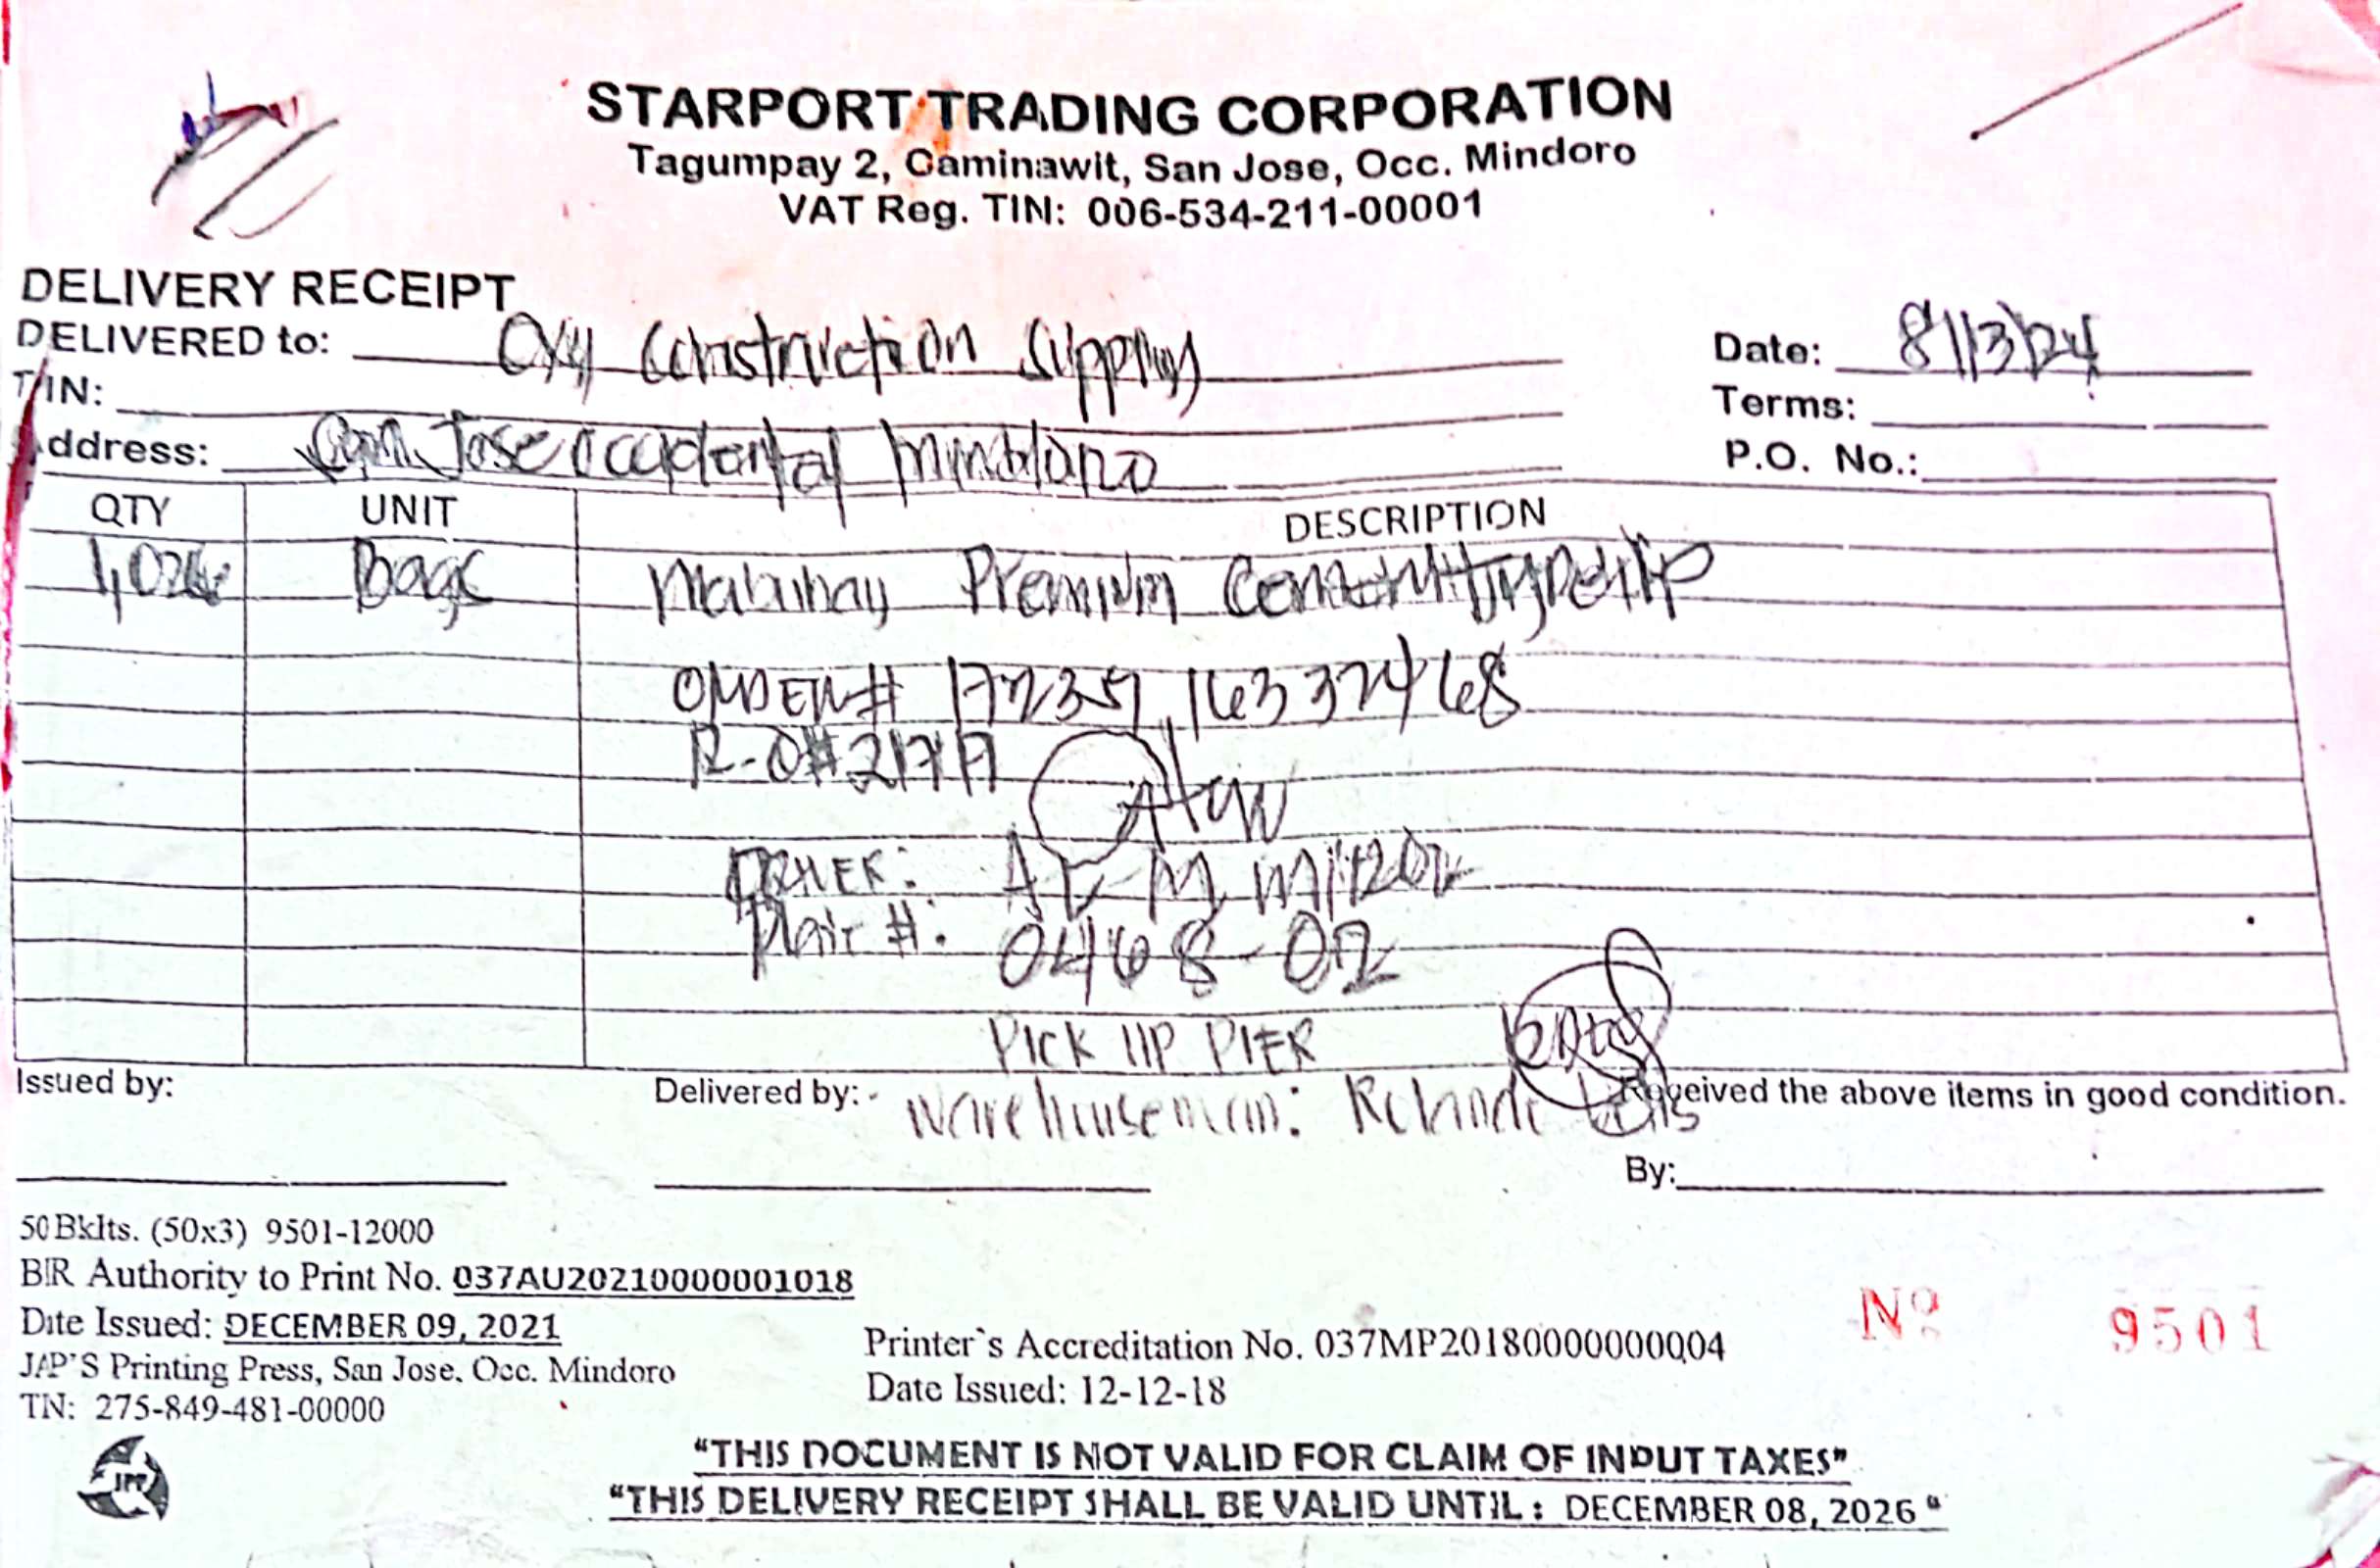 STARPORT TRADING CORPORATION
Tagumpay 2, Caminawit, San Jose, Occ. Mindoro
VAT Reg. TIN: 006-534-211-00001
DELIVERY RECEIPT
DELIVERED to: Oxy Construction Supply
Date: 8/13/24
TIN:
Terms:
Address: San Jose Occidental Mindoro
P.O. No.:
QTY UNIT DESCRIPTION
Bags Mabuhay Premium Cement
R-O#
Plate #: 0468-02
PICK UP PIER
Issued by:
Delivered by: Warehouseman:
Received the above items in good condition.
By:
50 Bklts. (50x3) 9501-12000
BIR Authority to Print No. 037AU20210000001018
Date Issued: DECEMBER 09, 2021
JAP'S Printing Press, San Jose, Occ. Mindoro
TIN: 275-849-481-00000
Printer`s Accreditation No. 037MP20180000000004
Date Issued: 12-12-18
Nº 9501
JPP
"THIS DOCUMENT IS NOT VALID FOR CLAIM OF INPUT TAXES"
"THIS DELIVERY RECEIPT SHALL BE VALID UNTIL : DECEMBER 08, 2026 "